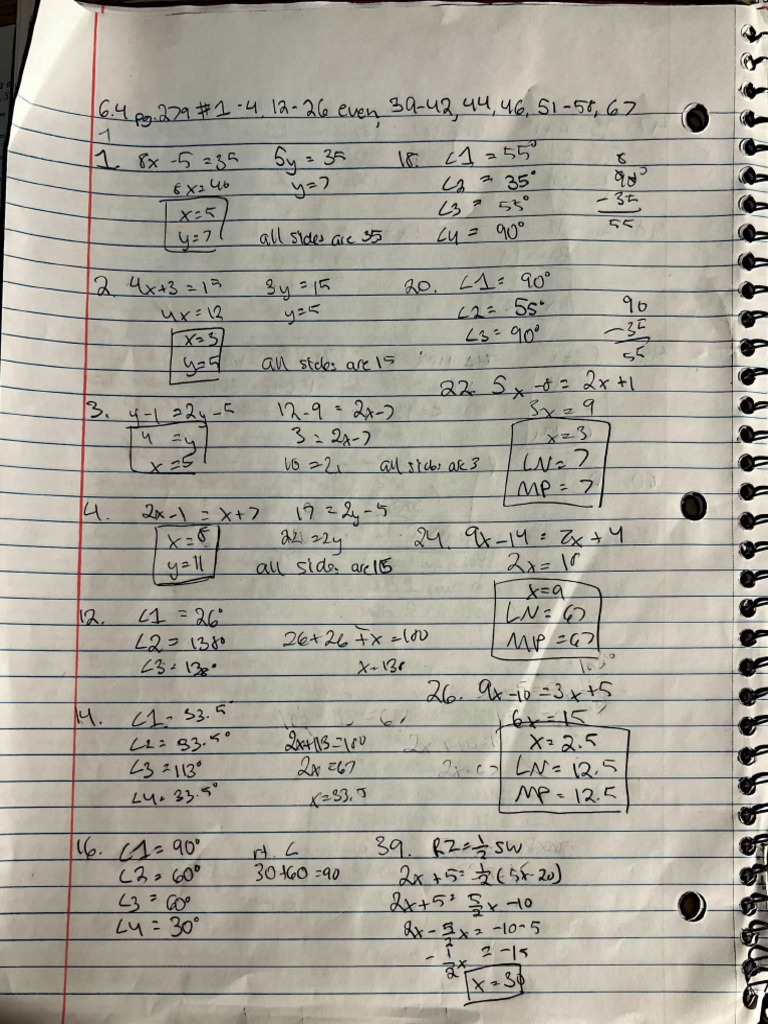 6.4 pg.279 #1-4, 12-26 even, 39-42, 44, 46, 51-58, 67
1. 8x-5=35 5y=35
8x=40 y=7
x=5
y=7 all sides are 35
2. 4x+3=15 3y=15
4x=12 y=5
x=3
y=5 all sides are 15
3. y-1=2y-5 12-9=2x-7
4=y 3=2x-7
x=5 10=2x all sides are 3
4. 2x-1=x+7 17=2y-5
x=8 22=2y
y=11 all sides are 15
12. ∠1=26°
∠2=138° 26+26+x=180
∠3=138° x=138
14. ∠1=33.5°
∠2=33.5° 2x+113=180
∠3=113° 2x=67
∠4=33.5° x=33.5
16. ∠1=90° rt. ∠
∠2=60° 30+60=90
∠3=60°
∠4=30°
18. ∠1=55°
∠2=35° 90
∠3=55° -35
∠4=90° 55
20. ∠1=90°
∠2=55° 90
∠3=90° -35
55
22. 5x-8=2x+1
3x=9
x=3
LN=7
MP=7
24. 9x-14=7x+4
2x=18
x=9
LN=67
MP=67
26. 9x-10=3x+5
6x=15
x=2.5
LN=12.5
MP=12.5
39. RZ=½SW
2x+5=½(5x-20)
2x+5=5/2x-10
2x-5/2x=-10-5
-½x=-15
x=30